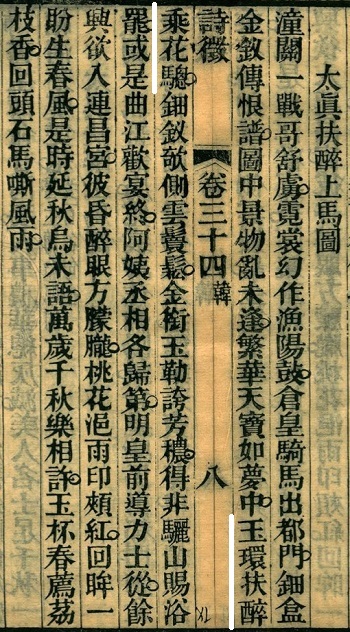 太真扶醉上馬圖
潼關一戰哥舒虜霓裳幻作漁陽鼓倉皇騎馬出都門鈿盒
金釵傳恨譜圖中景物亂未逢繁華天寶如夢中玉環扶醉
詩徵 卷三十四 韓 八
乘花驄鈿釵欹側雲鬟鬆金銜玉勒誇芳穠得非驪山賜浴
罷或是曲江歡宴終阿姨丞相各歸第明皇前導力士從餘
興欲入連昌宮彼昏醉眼方朦朧桃花浥雨印頰紅回眸一
盼生春風是時延秋烏未語萬歲千秋樂相許玉杯春薦荔
枝香回頭石馬嘶風雨